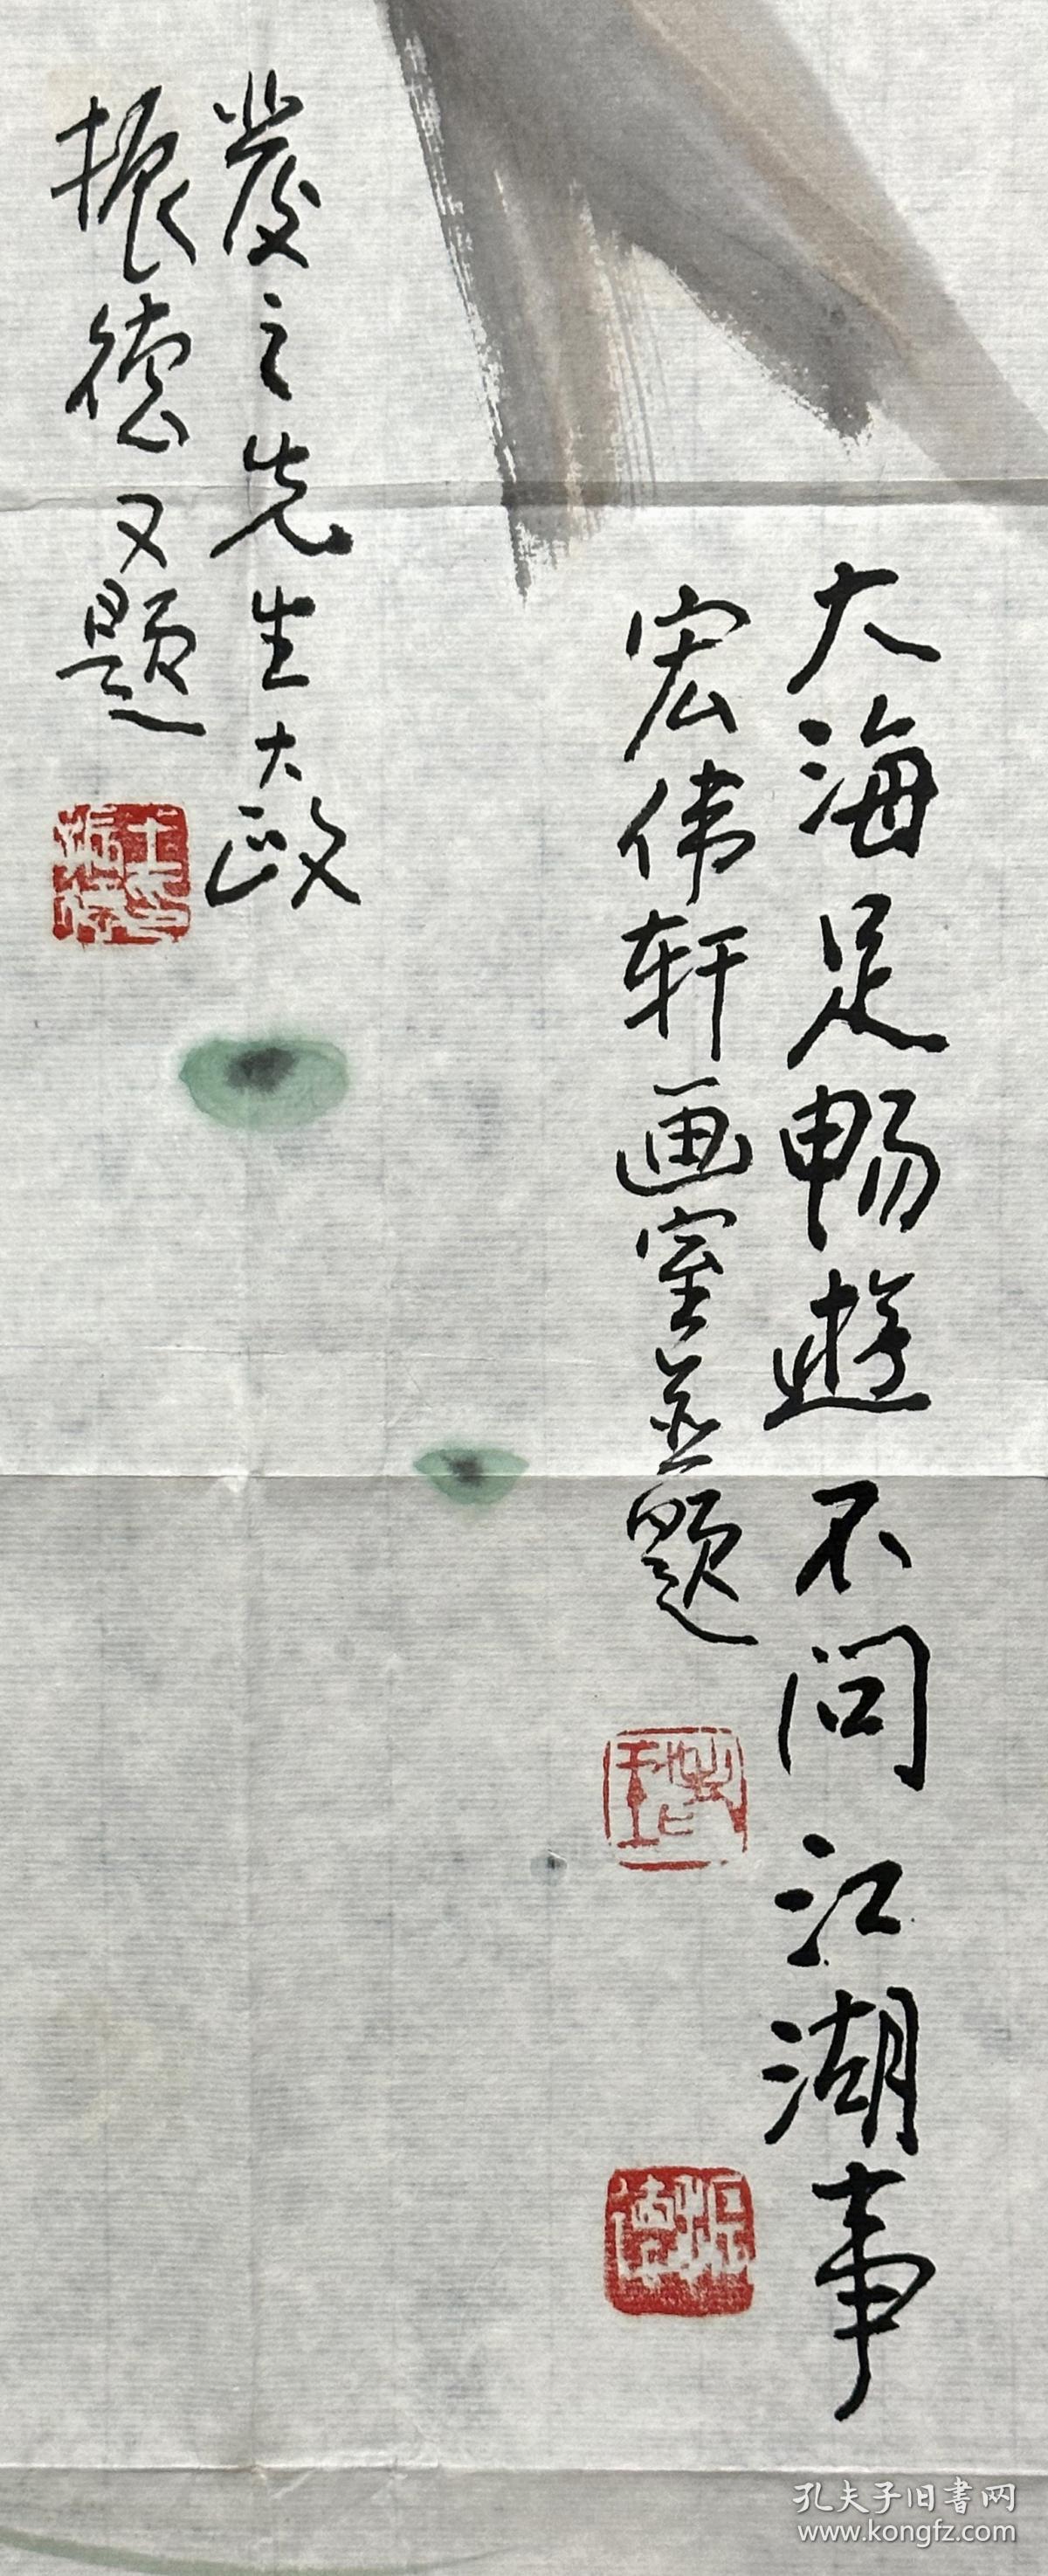 大海足畅遊不问江湖事
宏伟轩画室並题
發之先生大政
振德又题
王印振德
振德
孔夫子旧書网
www.kongfz.com